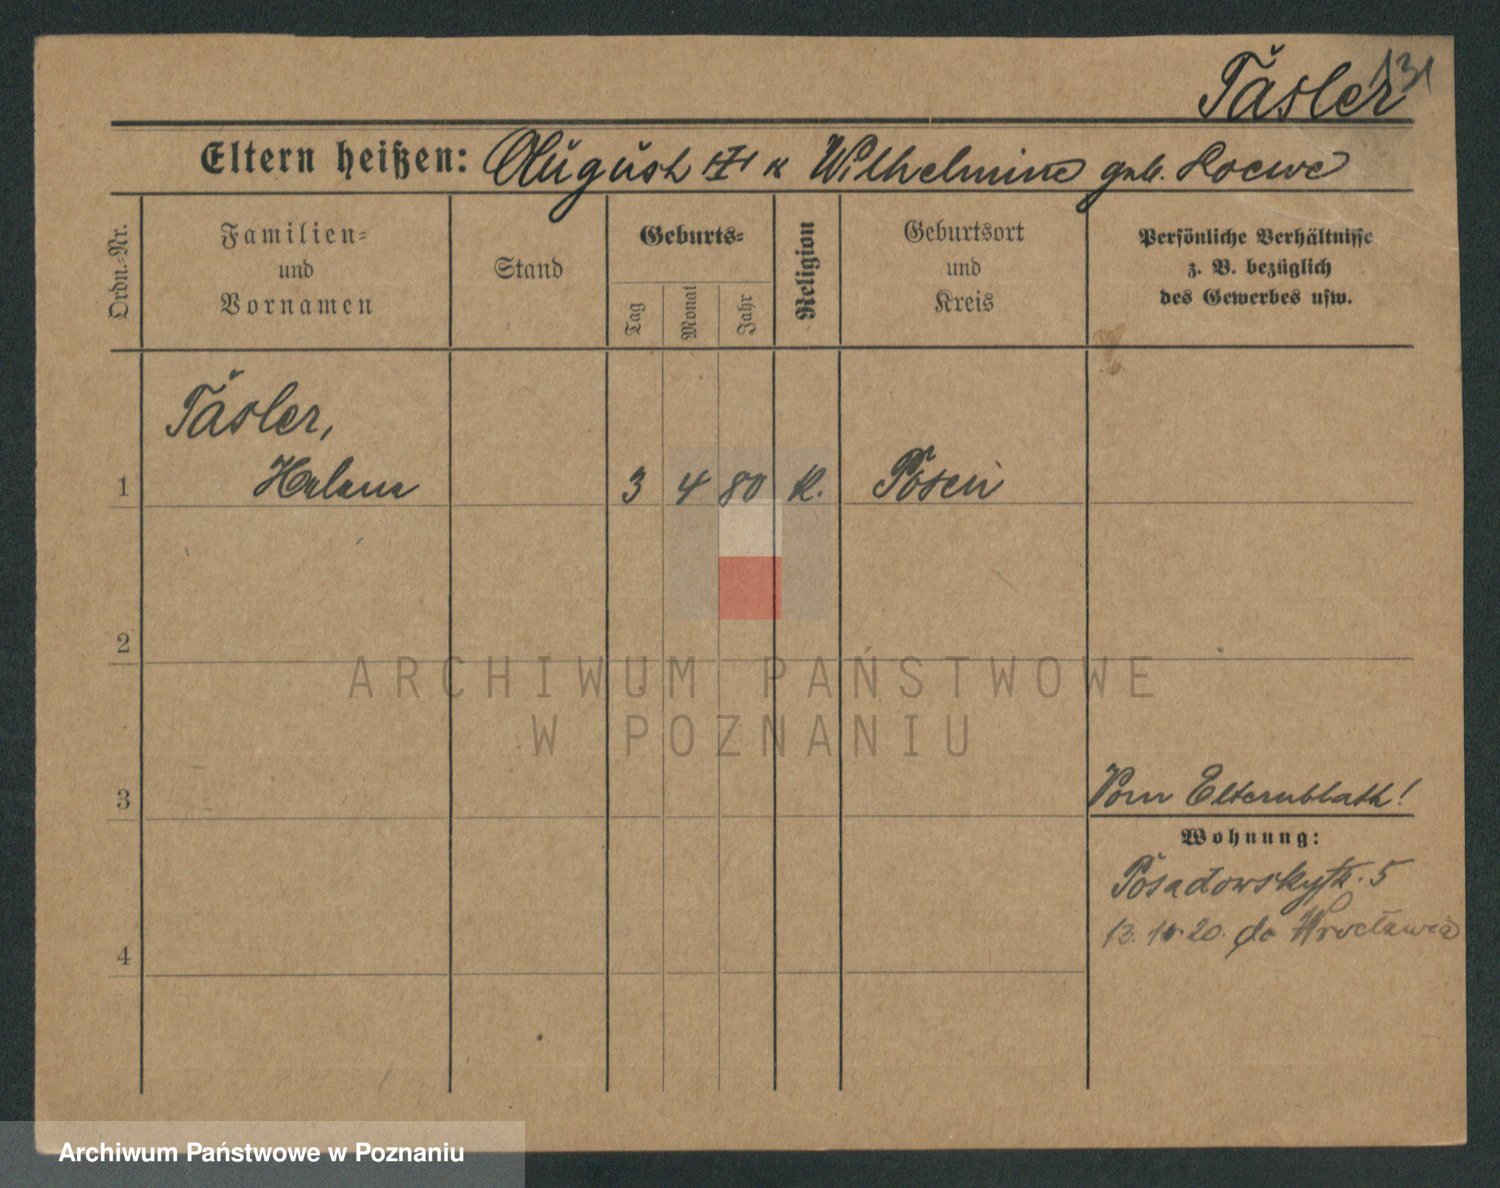 Täsler
131
Eltern heißen: August u. Wilhelmine geb. Loewe
Ordn.-Nr.
Familien-
und
Vornamen
Stand
Geburts-
Tag
Monat
Jahr
Religion
Geburtsort
und
Kreis
Persönliche Verhältnisse
z. B. bezüglich
des Gewerbes usw.
Täsler,
1 Helene 3 4 80 k. Posen
2
3
Vom Elternblatt!
Wohnung:
Posadowskystr. 5
13. 10. 20. do Wrocławia
4
ARCHIWUM PAŃSTWOWE
W POZNANIU
Archiwum Państwowe w Poznaniu